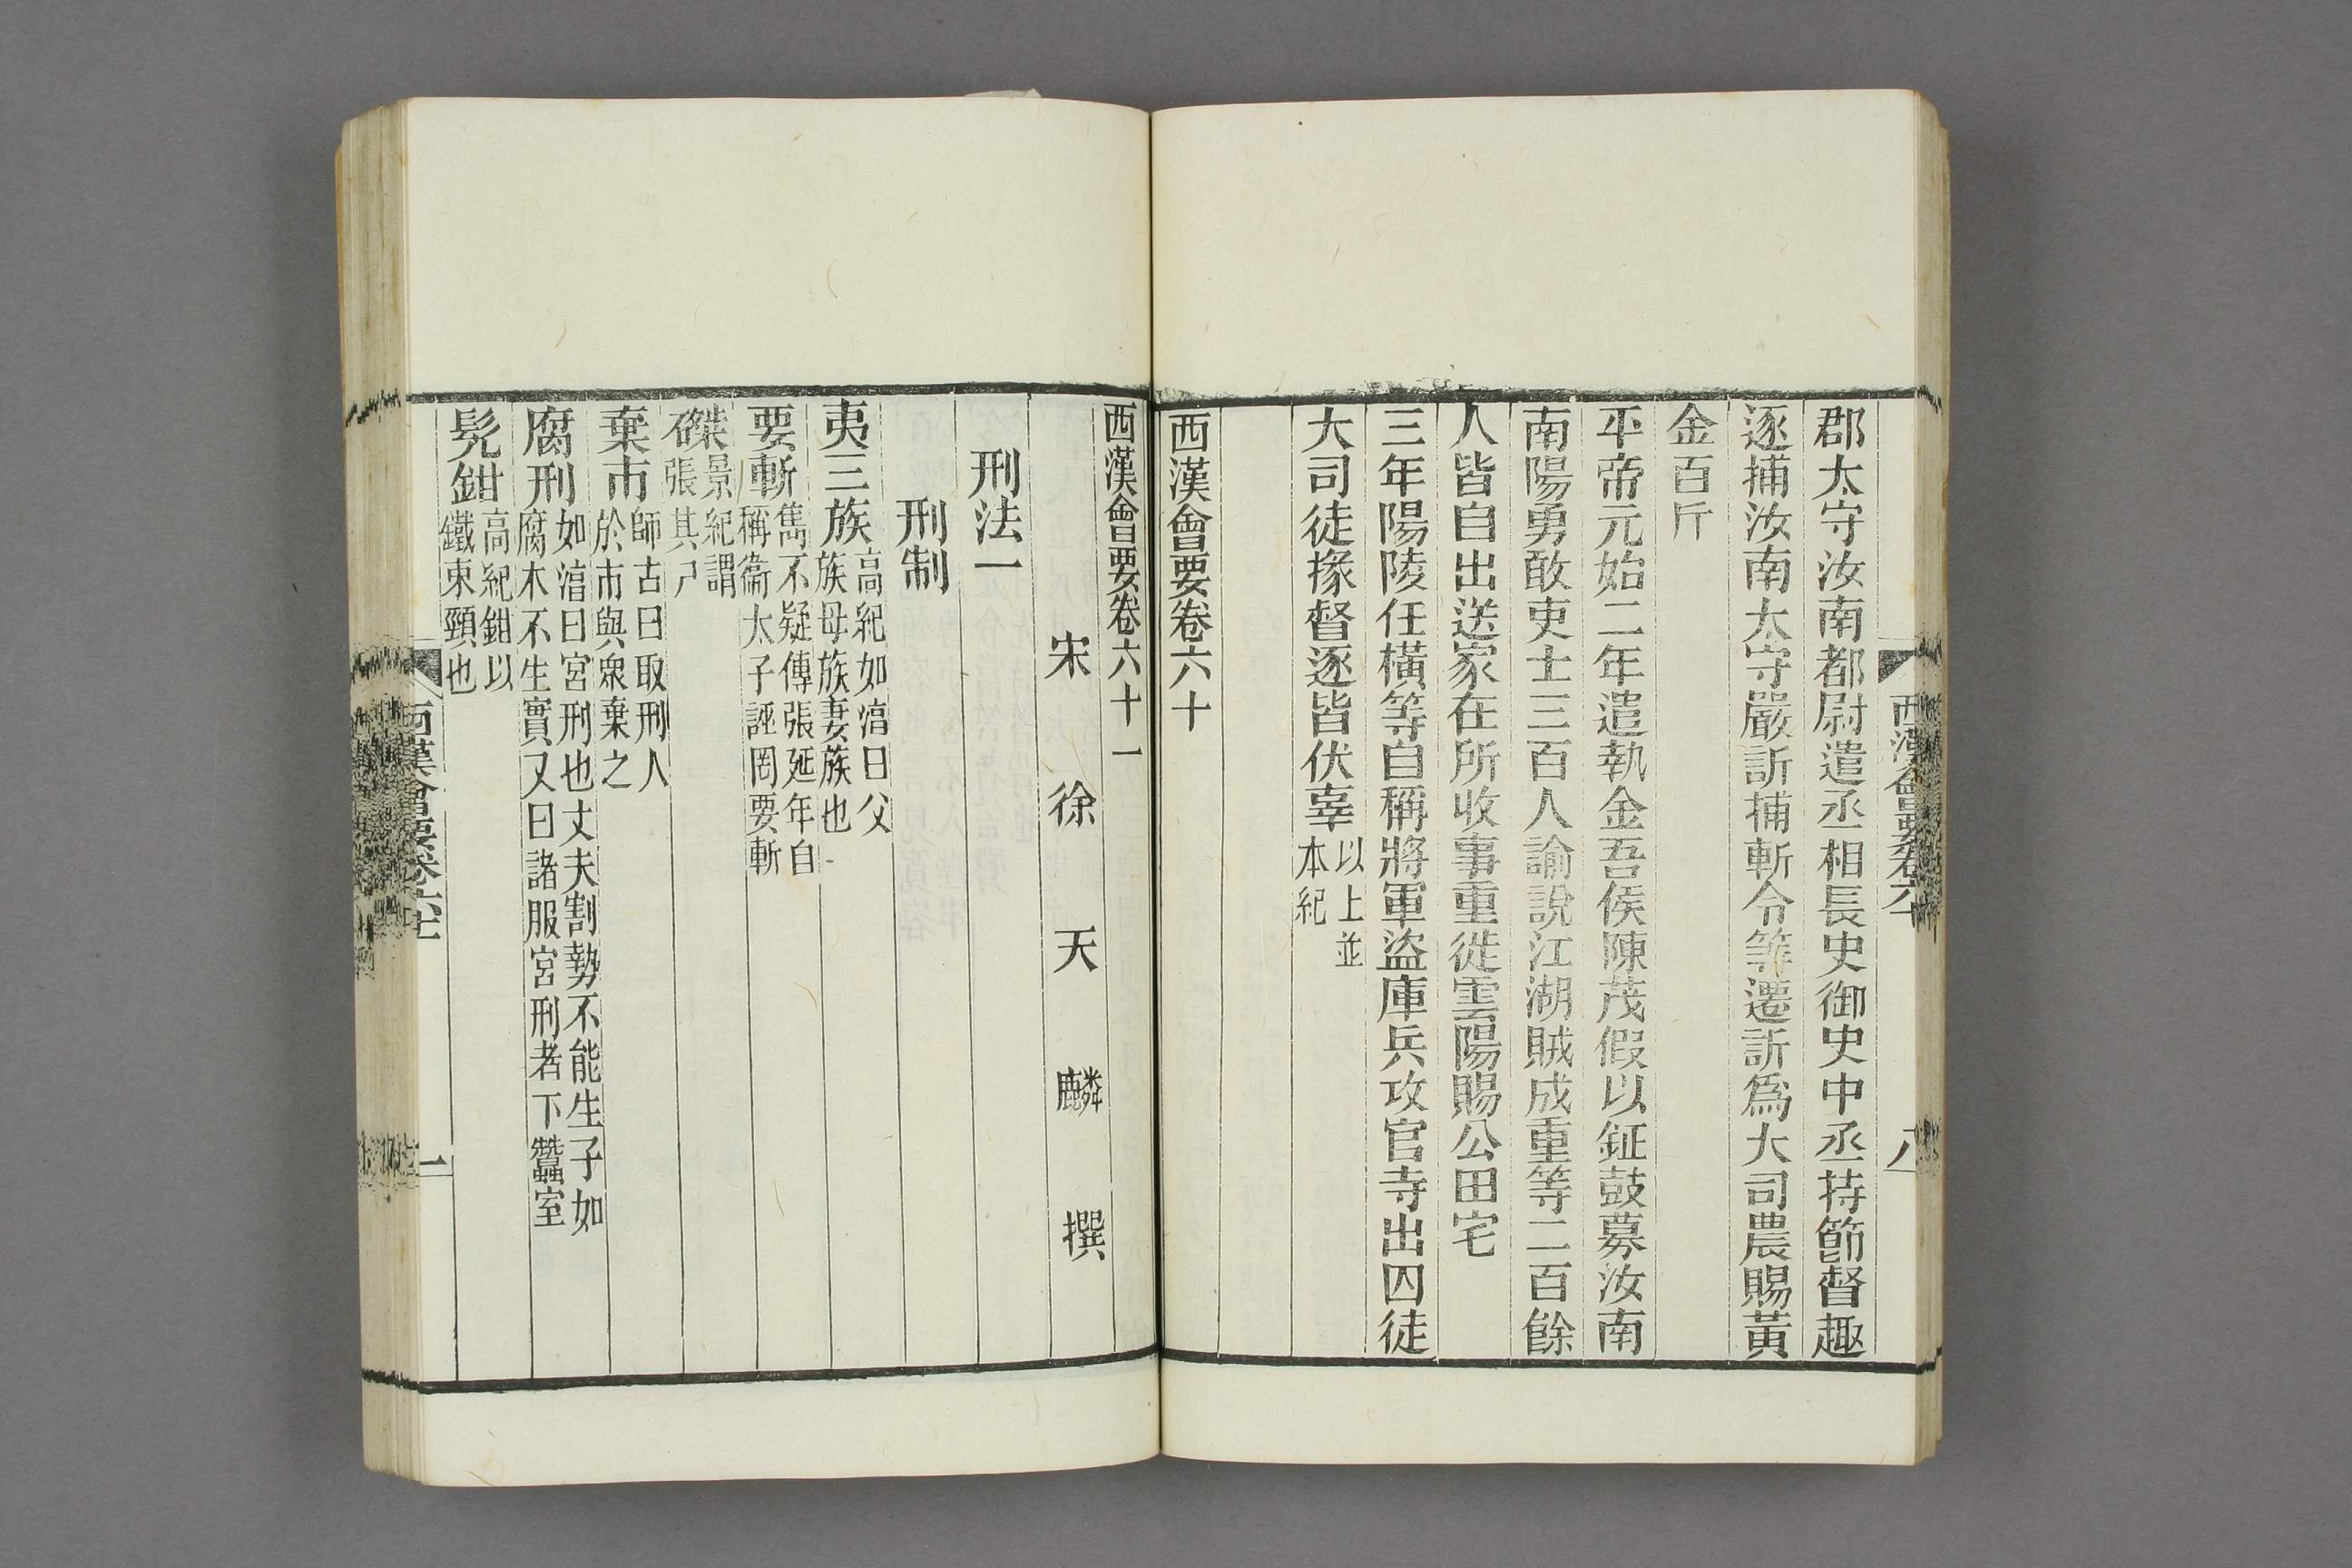 郡太守汝南都尉遣丞相長史御史中丞持節督趣
逐捕汝南太守嚴訢捕斬令等遷訢爲大司農賜黃
金百斤
平帝元始二年遣執金吾侯陳茂假以鉦鼓募汝南
南陽勇敢吏士三百人諭說江湖賊成重等二百餘
人皆自出送家在所收事重徙雲陽賜公田宅
三年陽陵任橫等自稱將軍盜庫兵攻官寺出囚徒
大司徒掾督逐皆伏辜以上並本紀
西漢會要卷六十
西漢會要卷六十一
宋 徐 天 麟 撰
刑法一
刑制
夷三族高紀如淳曰父族母族妻族也
要斬雋不疑傳張延年自稱衞太子誣罔要斬
磔景紀謂張其尸
棄市師古曰取刑人於市與衆棄之
腐刑如淳曰宮刑也丈夫割勢不能生子如腐木不生實又曰諸服宮刑者下蠶室
髡鉗高紀鉗以鐵束頸也
西漢會要卷六十一
一